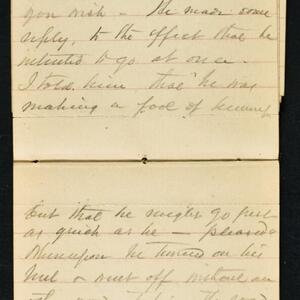 you wish – He made some
reply, to the effect that he
intended to go at once.
I told him that he was
making a fool of himself
But that he might go just
as quick as he – pleased
Whereupon he turned on his
heel & went off without an